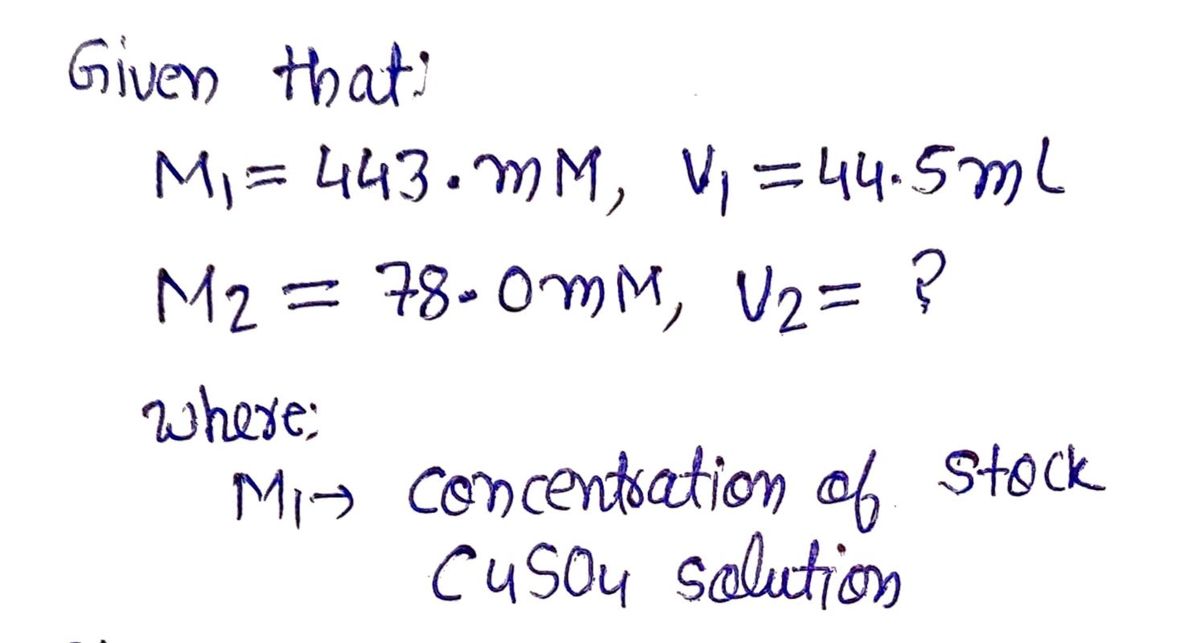 Given that:
M₁ = 443. mM, V₁ = 44.5ml
M2 = 78.0mM, V2 = ?
where:
M₁→ concentration of stock
CuSO4 solution